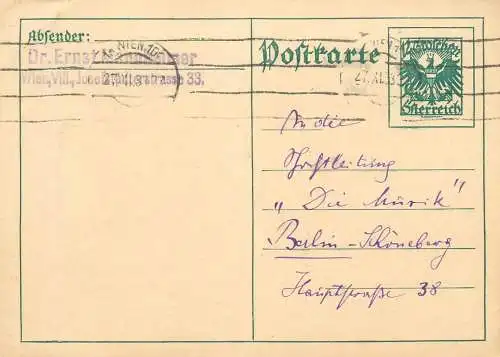 Absender:
Dr. Ernst
Wien, VIII., Josefstädterstrasse 33.
WIEN
Postkarte
Groschen
Österreich
An die
Schriftleitung
"Die Musik"
Berlin-Schöneberg
Hauptstraße 38